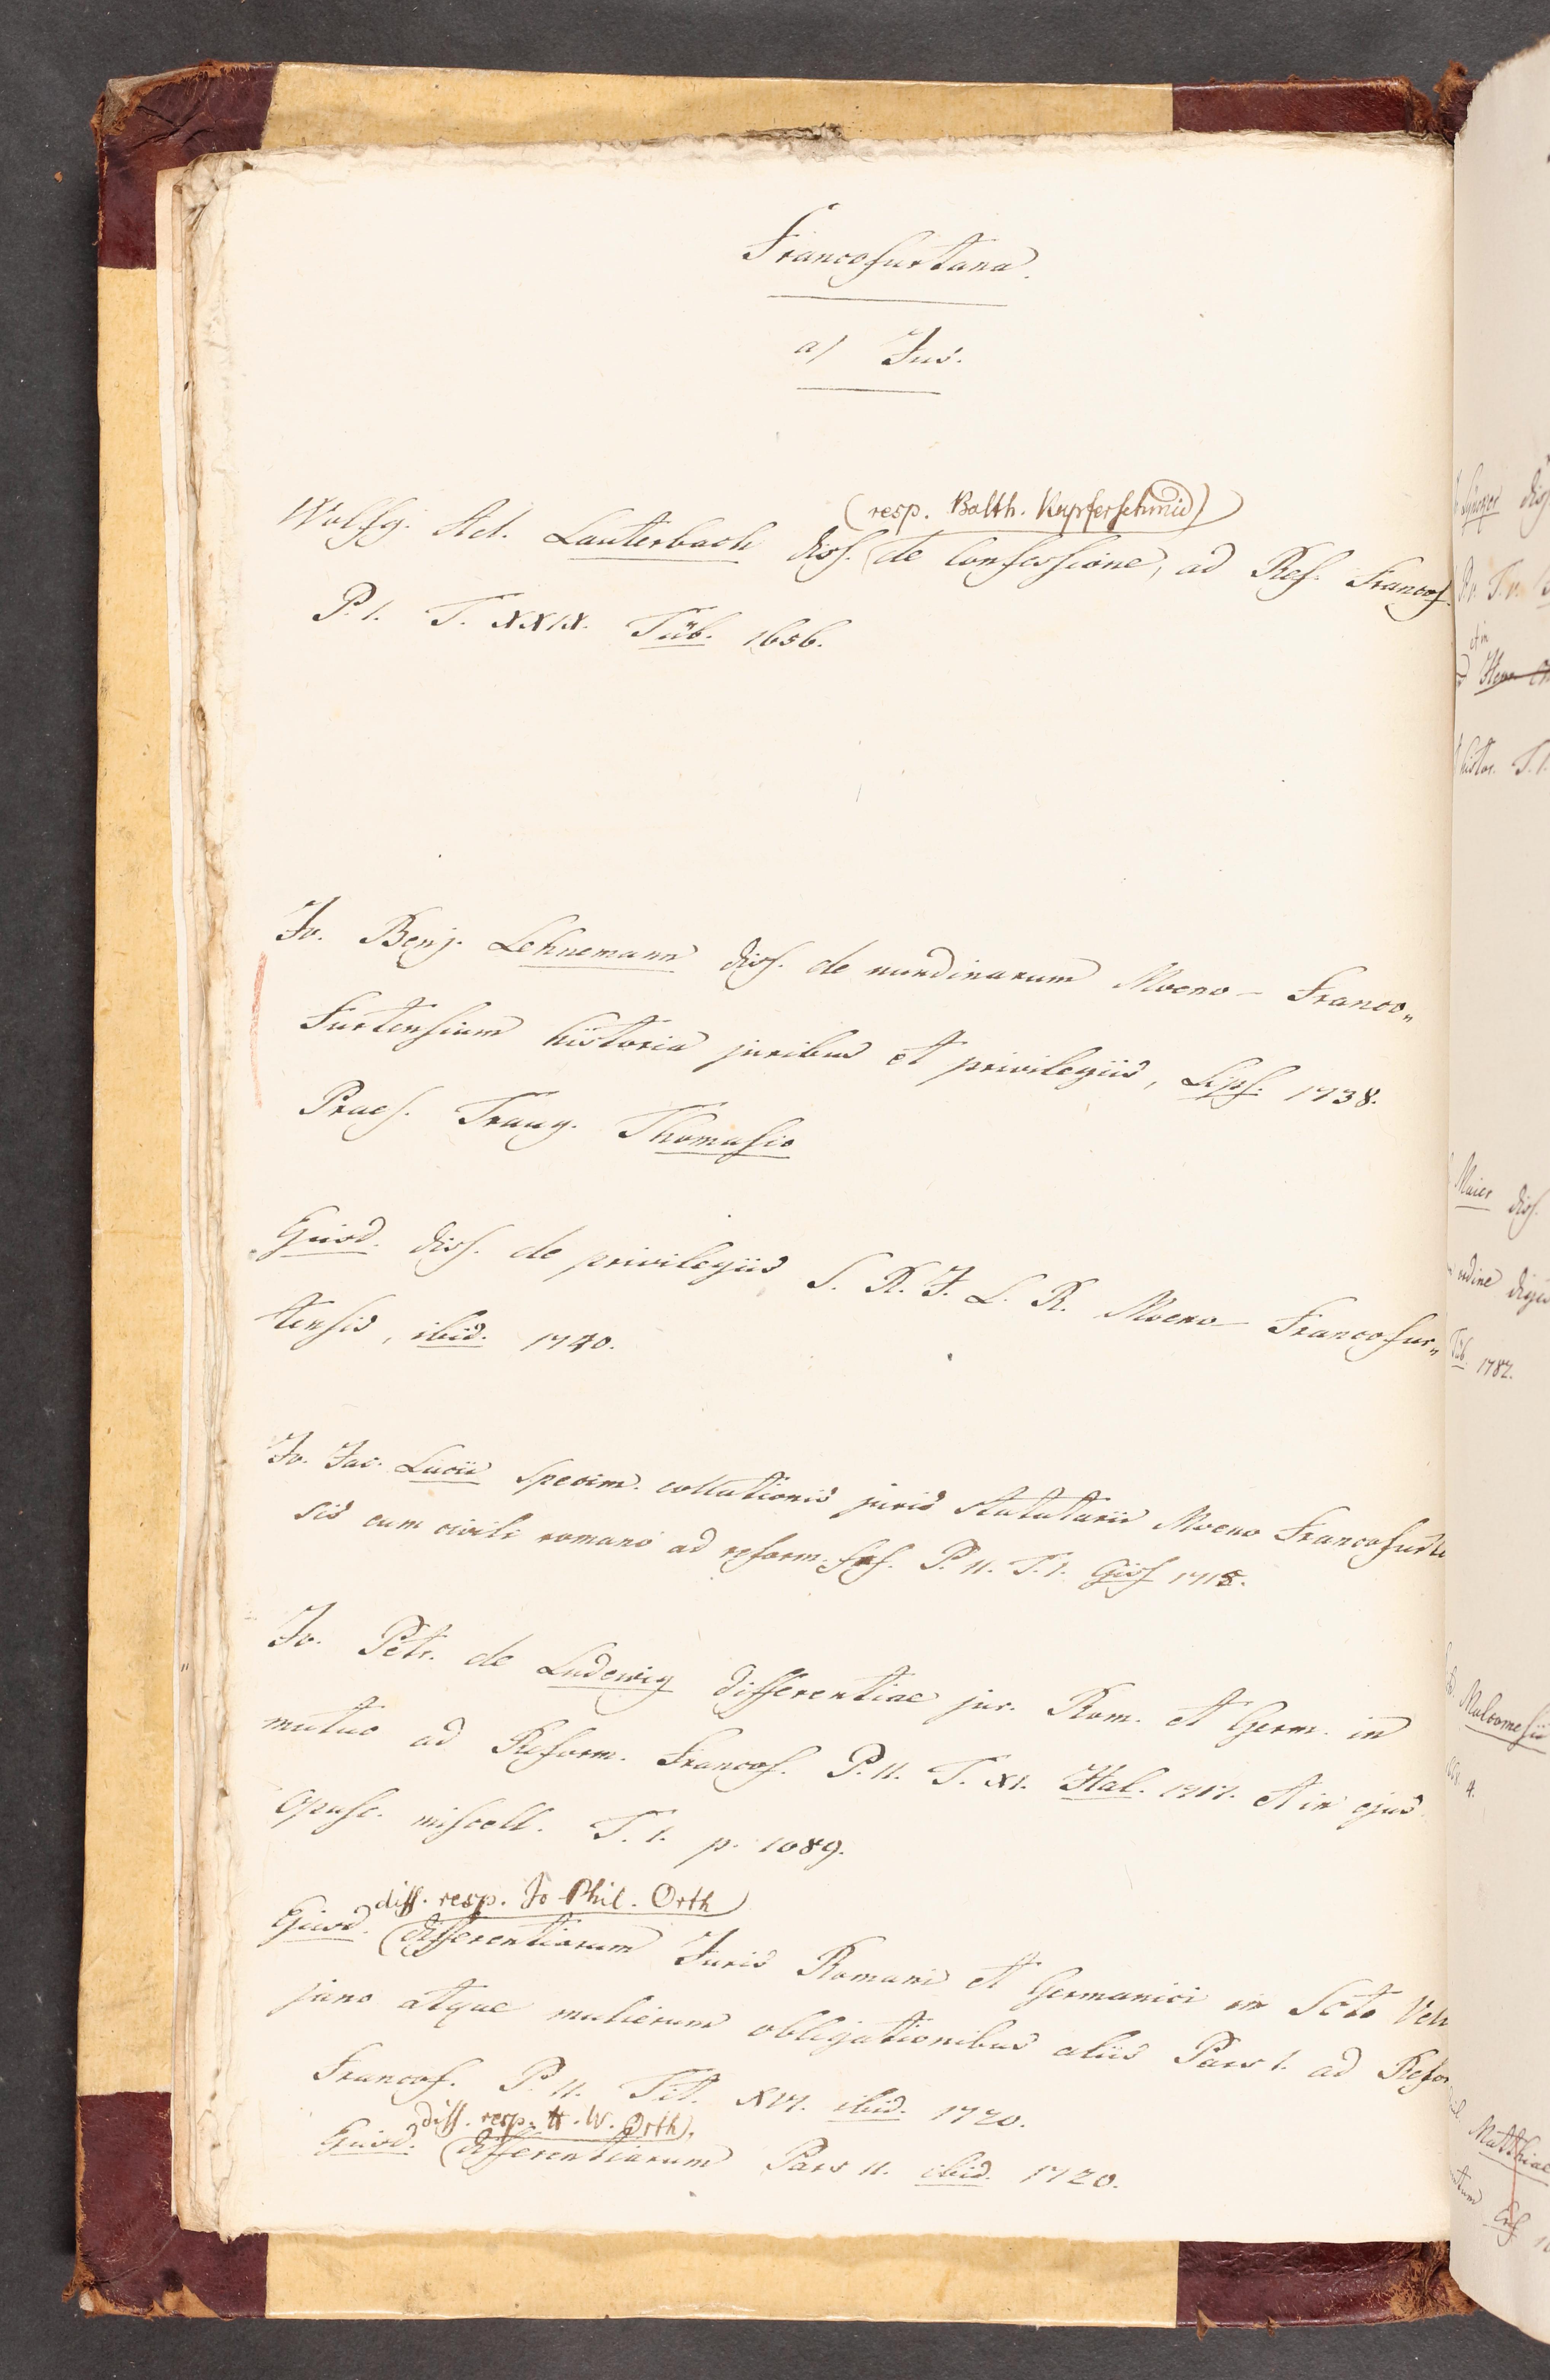 Francofurtana.
a) Jus.
(resp. Balth. Kupferschmid)
Wolfg. Ad. Lauterbach diss. de Confessione, ad Ref. Francof.
P. I. T. XXIX. Tüb. 1656.
Jo. Benj. Lehnemann diss. de nundinarum Moeno-Franco„
furtensium historia juribus et privilegiis, Lips. 1738.
Praes. Traug. Thomasio
Ejusd. diss. de privilegiis S. R. I. L. R. Moeno-Francofur„
tensis, ibid. 1740.
Jo. Jac. Lucii Specim. collationis juris statutarii Moeno Francofurte
sis cum civili romano ad reform. frf. P. II. T. I. Giss
Jo. Petr. de Ludewig differentiae jur. Rom. et Germ. in
mutuo ad Reform. Francof. P. II. T. XI. Hal. 1717. et in ejus
Opusc. miscell. T. I. p. 1089.
diss. resp. Jo Phil. Orth
Ejusd. (differentiarum Juris Romani et Germanici in Scto Vel
jano atque mulierum obligationibus aliis Pars I. ad Refor
Francof. P. II. Tit. XVI. ibid. 1720.
diss. resp. H. W. Orth.
Ejusd. (differentiarum Pars II. ibid. 1720.
diss
et in
histor. T. I.
Maier diss.
ordine diges
Tüb. 1782.
Malcomesii
4.
Matthiae